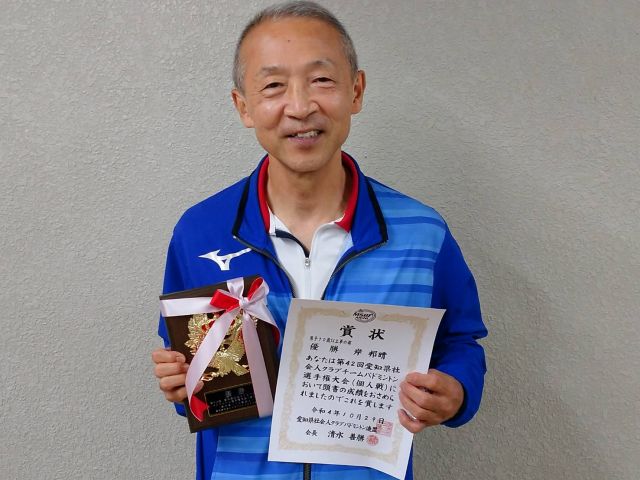 賞状
優勝 岸 邦晴
あなたは第42回愛知県社
会人クラブチームバドミントン
選手権大会(個人戦)に
おいて頭書の成績をおさめら
れましたのでこれを賞します
令和4年10月29日
愛知県社会人クラブバドミントン連盟
会長 清水 善勝